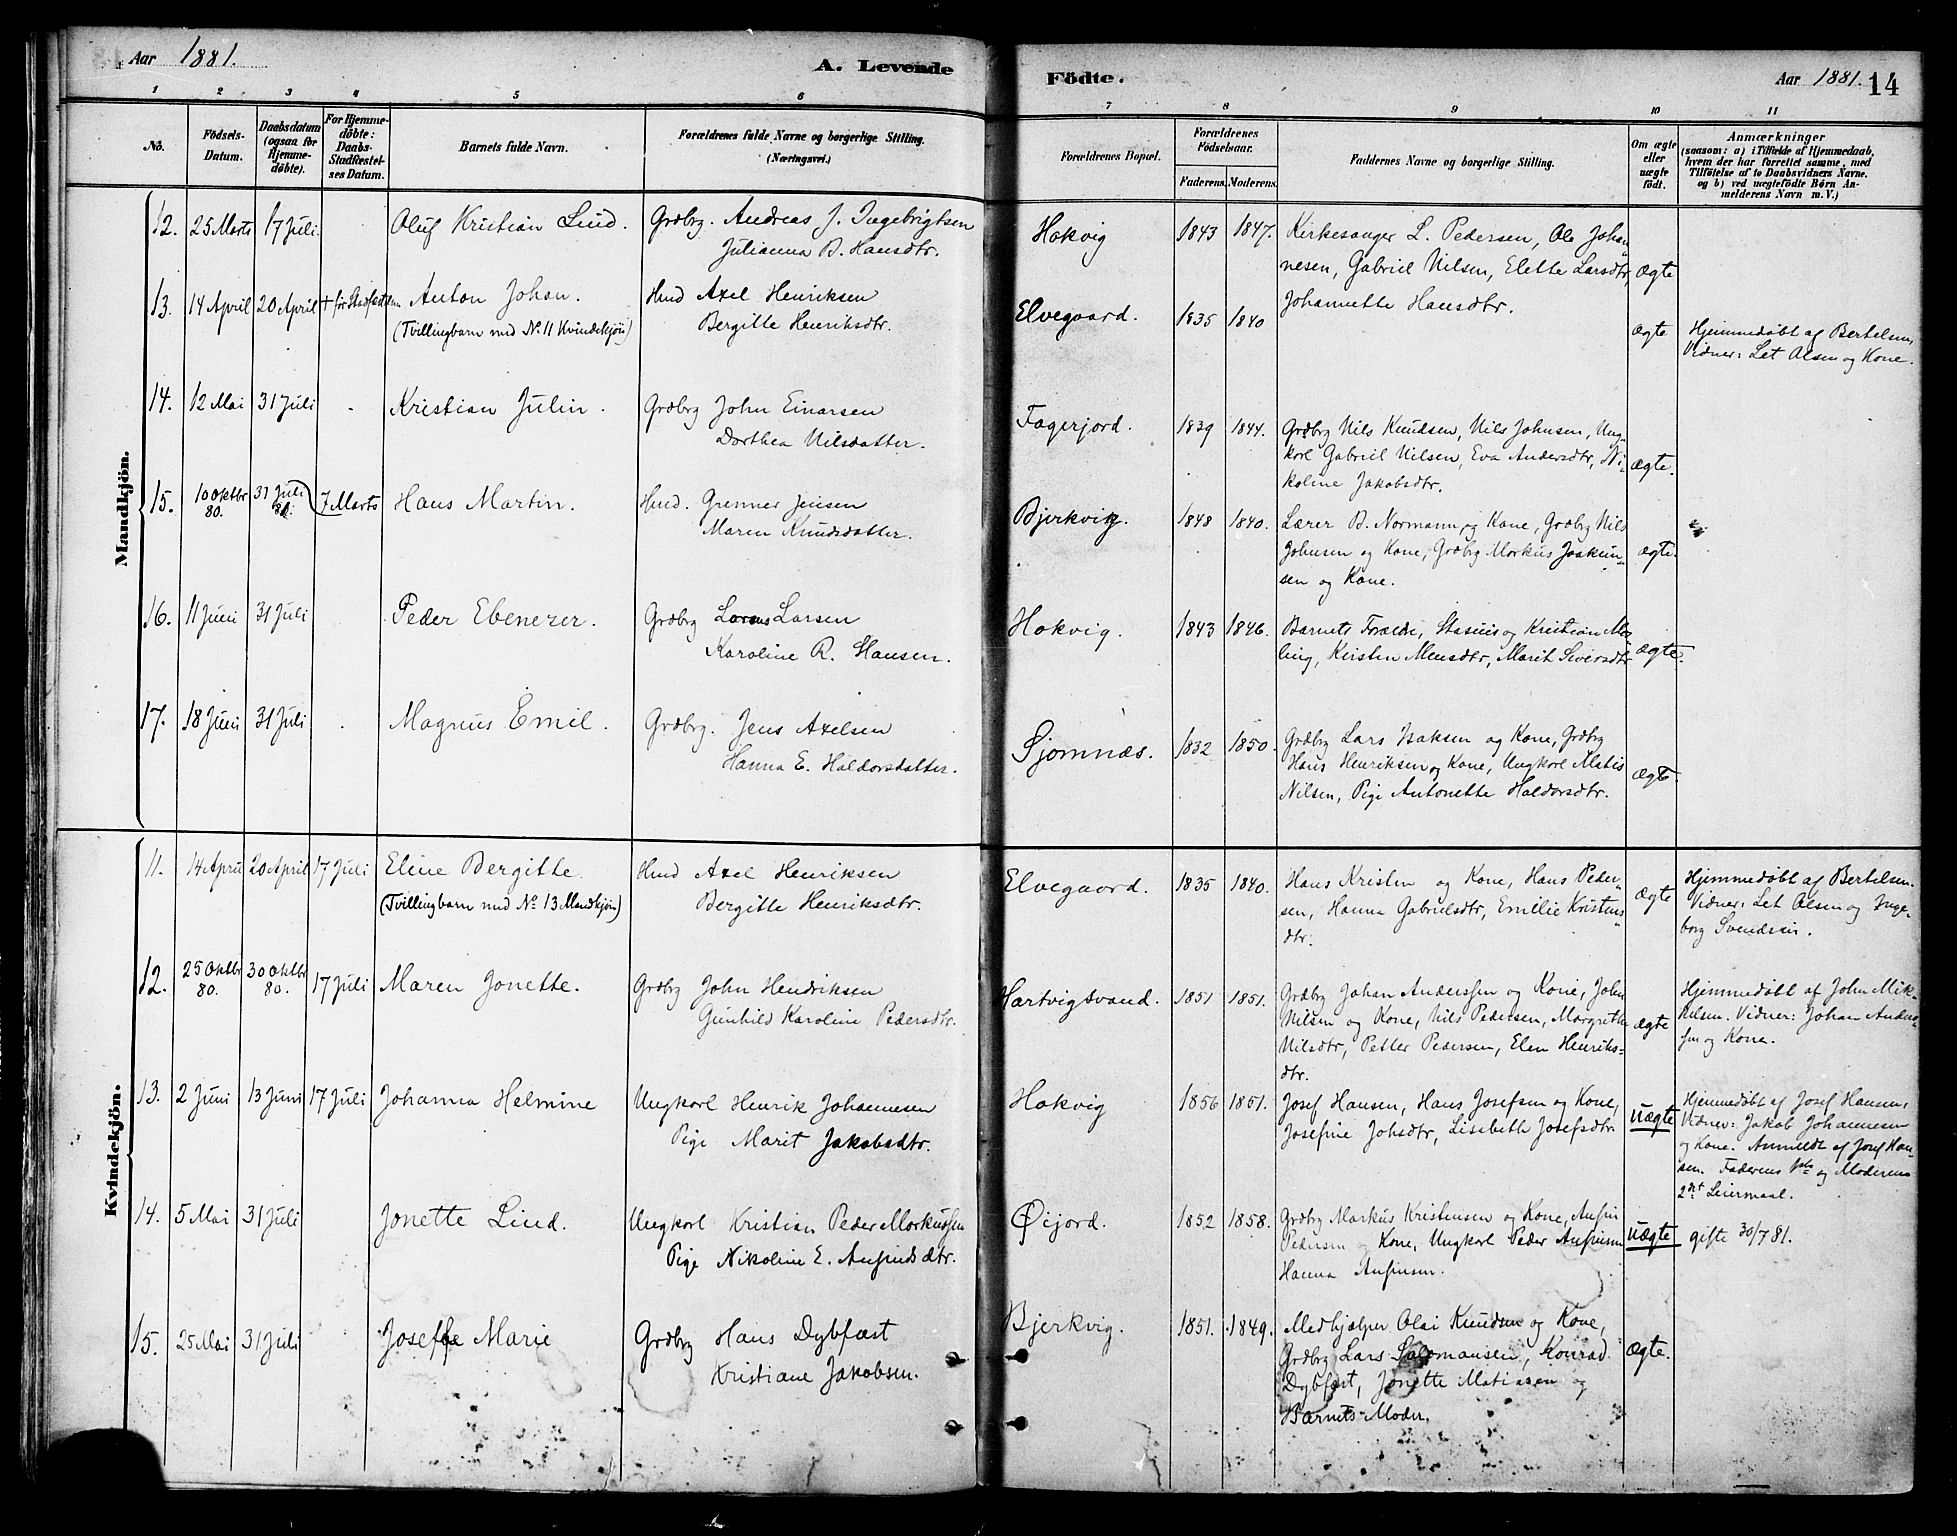 Aar 1881.
A. Levende
Födte.
Aar 1881.
14
1 2 3 4 5 6 7 8 9 10 11
No.
Födsels-Datum.
Daabsdatum (ogsaa for Hjemmedöbte).
For Hjemmedöbte: Daabs-Stadfæstelses Datum.
Barnets fulde Navn.
Forældrenes fulde Navne og borgerlige Stilling.
(Næringsvei.)
Forældrenes Bopæl.
Forældrenes Födselsaar.
Faderens. Moderens.
Faddernes Navne og borgerlige Stilling.
Om ægte eller uægte födt.
Anmærkninger
(saasom: a) i Tilfælde af Hjemmedaab,
hvem der har forrettet samme, med
Tilföielse af to Daabsvidners Navne.
og b) ved uægtefödte Børn Anmelderens Navn m. V.)
Mandkjön.
12. 25 Marts 17 Juli. Oluf Kristian Lind. Grdbrg. Andreas J. Ingebrigtsen
Julianna B. Hansdtr.
Hokvig 1843 1847. Kirkesanger L. Pedersen, Ole Johan
nesen, Gabriel Nilsen, Elette Larsdtr,
Johannette Hansdtr.
ægte
13. 14 April 20 April † før Stadfæstelsen Anton Johan.
(Tvillingbarn med No 11 Kvindekjön)
Hmd Axel Henriksen
Bergitte Henriksdtr.
Elvegaard. 1835 1840
ægte
Hjemmedøbt af Bertelsen,
Vidner: Let Olsen og Kone.
14. 12 Mai 31 Juli - Kristian Julin. Grdbrg John Einarsen
Dorthea Nilsdatter.
Fagerjord. 1839 1844. Grdbrg Nils Knudsen, Nils Johnsen, Ung-
karl Gabriel Nilsen, Eva Andersdtr, Ni-
koline Jakobsdtr.
ægte.
15. 10 Oktbr 80. 31 Juli 81. 7 Marts Hans Martin. Hmd. Grenner Jensen
Maren Knudsdatter.
Bjerkvig. 1848 1840. Lærer B. Normann og Kone, Grdbrg Nils
Johnsen og Kone, Grdbrg Markus Joakim-
sen og Kone.
ægte.
16. 11 Juni 31 Juli Peder Ebenezer. Grdbrg Larsen
Karoline R. Hansen.
Hokvig. 1843 1846. Barnets Forældre, og Kristian Mo-
ling, Kirsten Mensdtr, Marit Siversdtr
ægte.
17. 18 Juni 31 Juli Magnus Emil. Grdbrg. Jens Axelsen
Hanna E. Haldorsdatter.
Sjomnæs. 1832 1850. Grdbrg Lars Isaksen og Kone, Grdbrg
Hans Henriksen og Kone, Ungkarl Matis
Nilsen, Pige Antonette Haldorsdtr.
ægte.
Kvindekjön.
11. 14 April 20 April 17 Juli Eline Bergitte.
(Tvillingbarn med No 13 Mandkjøn)
Hmd Axel Henriksen
Bergitte Henriksdtr.
Elvegaard. 1835 1840. Hans Kristen og Kone, Hans Peder-
sen, Hanna Gabrielsdtr, Emilie Kristens
dtr.
ægte
Hjemmedøbt af Bertelsen.
Vidner: Let Olsen og Inge-
borg Svendsen.
12. 25 Oktbr 80. 30 Oktbr 80. 17 Juli Maren Jonette. Grdbrg John Hendriksen
Gunhild Karoline Pedersdtr.
Hartvigsvand. 1851 1851. Grdbrg Johan Anderssen og Kone, John
Nilsen og Kone, Nils Pedersen, Margrethe
Nilsdtr, Petter Pedersen, Elen Henriks-
dtr.
ægte
Hjemmedøbt af John Mik-
kelsen. Vidner: Johan Anders-
sen og Kone.
13. 2 Juni 13 Juni 17 Juli Johanna Helmine Ungkarl Henrik Johannesen
Pige Marit Jakobsdtr.
Hokvig 1856 1851. Josef Hansen, Hans Josefsen og Kone,
Josefine Johsdtr, Lisebeth Josefsdtr
uægte
Hjemmedøbt af Josef Hansen.
Vidner: Jakob Johannesen
og Kone. Anmeldt af Josef Han-
sen. Faderens 1ste og Moderens
2det Leiermaal.
14. 5 Mai 31 Juli Jonette Lind. Ungkarl Kristian Peder Markussen
Pige Nikoline E. Anfindsdtr.
Øijord. 1852 1858. Grdbrg Markus Kristensen og Kone, Anfin
Pedersen og Kone, Ungkarl Peder Anfinsen
Hanna Anfinsen.
uægte
gifte 30/7 81.
15. 25 Mai 31 Juli Joseffe Marie Grdbrg Hans Dybfæst
Kristiane Jakobsen.
Bjerkvig. 1851. 1849. Medhjælper Olai Knudsen og Kone,
Grdbrg Lars Salomonsen, Konrad
Dybfæst, Jonette Matiasen og
Barnets Moder.
ægte.